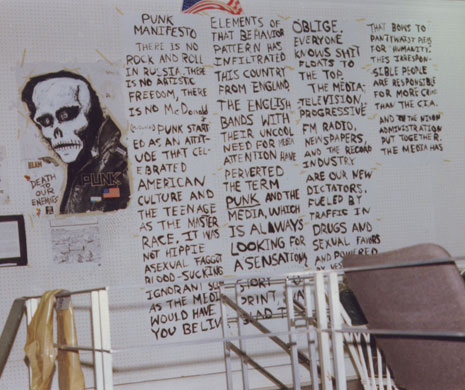 PUNK
MANIFESTO
THERE IS NO
ROCK AND ROLL
IN RUSSIA. THERE
IS NO ARTISTIC
FREEDOM, THERE
IS NO McDonald
PUNK START
ED AS AN ATTI-
TUDE THAT CEL-
EBRATED
AMERICAN
CULTURE AND
THE TEENAGE
AS THE MASTER
RACE. IT WAS
NOT HIPPIE
ASEXUAL FAGGOT
BLOOD-SUCKING
IGNORANT
AS THE MEDI
WOULD HAVE
YOU BELIV
ELEMENTS OF
THAT BEHAVIOR
PATTERN HAS
INFILTRATED
THIS COUNTRY
FROM ENGLAND.
THE ENGLISH
BANDS WITH
THEIR UNCOOL
NEED FOR MEDIA
ATTENTION HAVE
PERVERTED
THE TERM
PUNK AND THE
MEDIA, WHICH
IS ALWAYS
LOOKING FOR
A SENSATION
STORY
PRINT
OBLIGE
EVERYONE
KNOWS SHIT
FLOATS TO
THE TOP.
THE MEDIA-
TELEVISION,
PROGRESSIVE
FM RADIO,
NEWSPAPERS,
AND THE RECORD
INDUSTRY
ARE OUR NEW
DICTATORS.
FUELED BY
TRAFFIC IN
DRUGS AND
SEXUAL FAVORS
AND POWERED
THAT BOMS TO
FOR HUMANITY.
THIS IRRESPON-
SIBLE PEOPLE
ARE RESPONSIBLE
FOR MORE CRIME
THAN THE C.I.A.
AND THE NIXON
ADMINISTRATION
PUT TOGETHER.
THE MEDIA HAS
DEATH TO
OUR
ENEMIES
PUNK